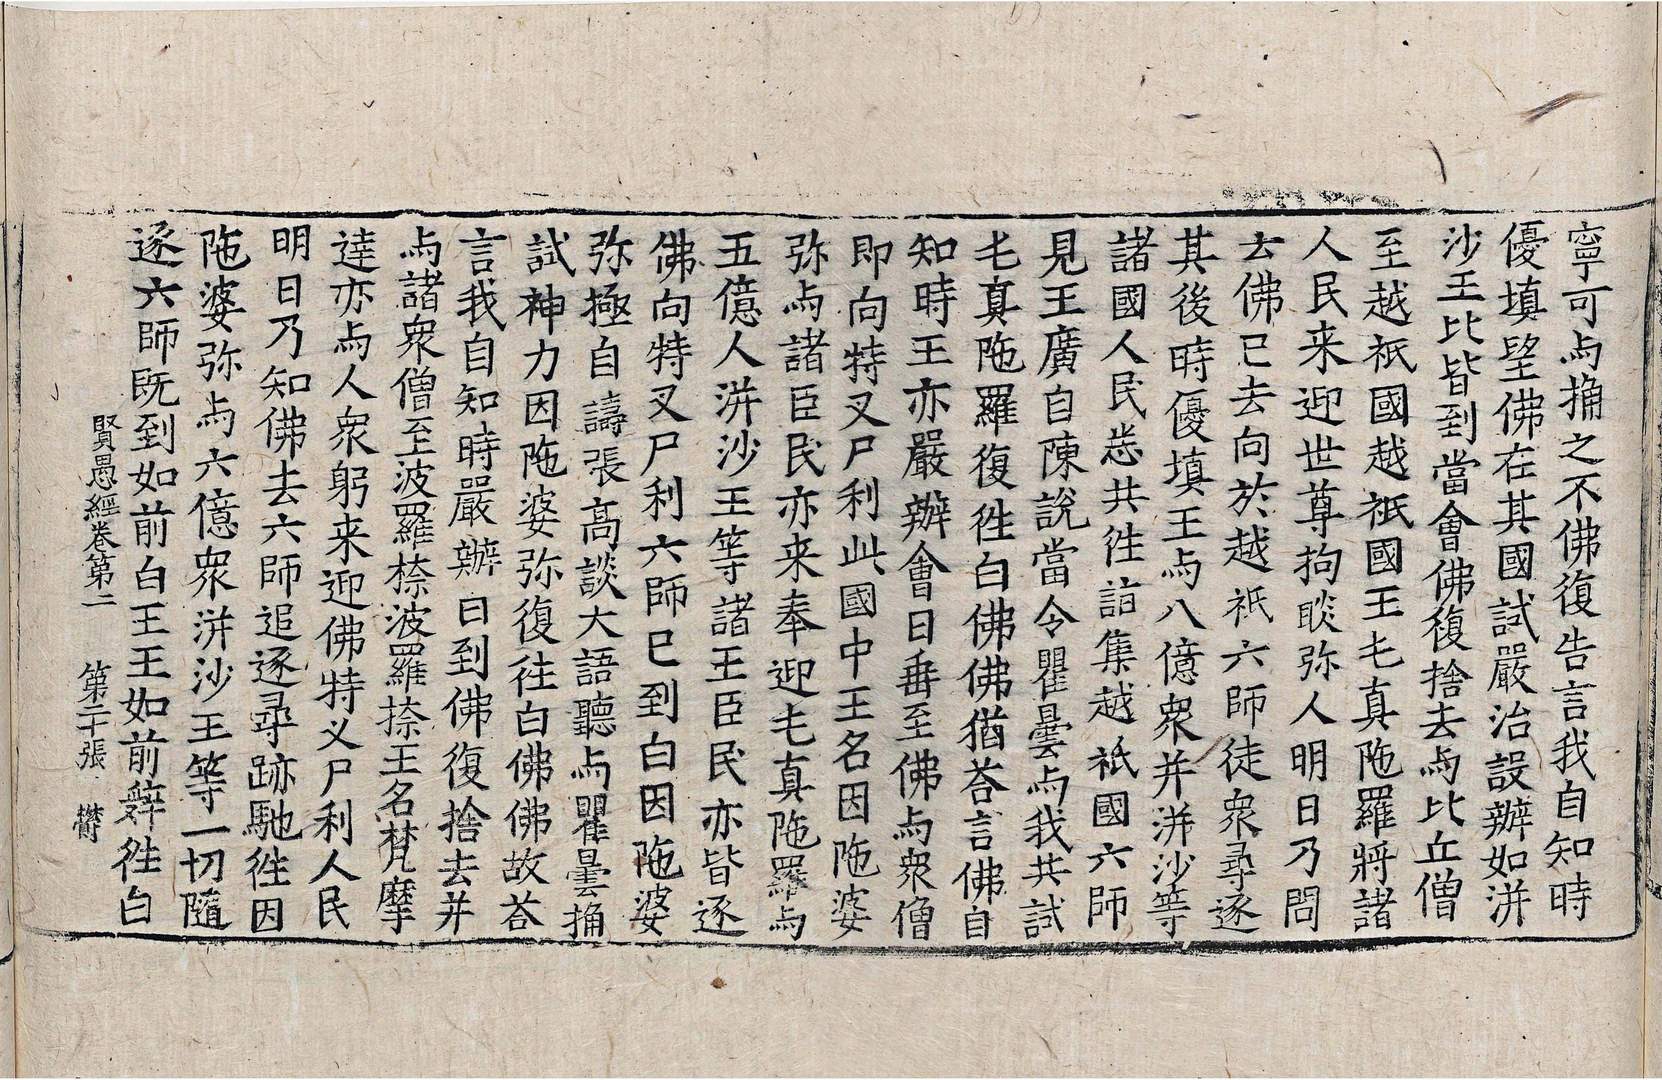 寧可与捔之不佛復告言我自知時
優填堅佛在其國試嚴治設辦如洴
沙王比皆到當會佛復捨去与比丘僧
至越祇國越祇國王乇真陁羅將諸
人民来迎世尊拘睒弥人明日乃問
去佛已去向於越祇六師徒衆尋逐
其後時優填王与八億衆并洴沙等
諸國人民悉共徃詣集越祇國六師
見王廣自陳說當令瞿曇与我共試
乇真陁羅復徃白佛佛猶荅言佛自
知時王亦嚴辦會日垂至佛与衆僧
即向特叉尸利此國中王名因陁婆
弥与諸臣民亦来奉迎乇真陁羅与
五億人洴沙王等諸王臣民亦皆逐
佛向特叉尸利六師已到白因陁婆
弥極自譸張高談大語聽与瞿曇捔
試神力因陁婆弥復徃白佛佛故荅
言我自知時嚴辦日到佛復捨去并
与諸衆僧至波羅㮈波羅捺王名梵摩
達亦与人衆躬来迎佛特叉尸利人民
明日乃知佛去六師追逐尋跡馳徃因
陁婆弥与六億衆洴沙王等一切隨
逐六師既到如前白王王如前辤徃白
賢愚經卷第二 第二十張 欝